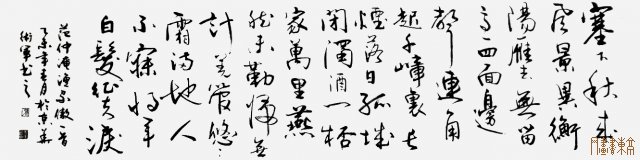 塞下秋来
风景异衡
阳雁去无留
意四面边
声连角
起千嶂里长
烟落日孤城
闭浊酒一杯
家万里燕
然未勒归无
计羌管悠悠
霜满地人
不寐将军
白发征夫泪
范仲淹渔家傲一首